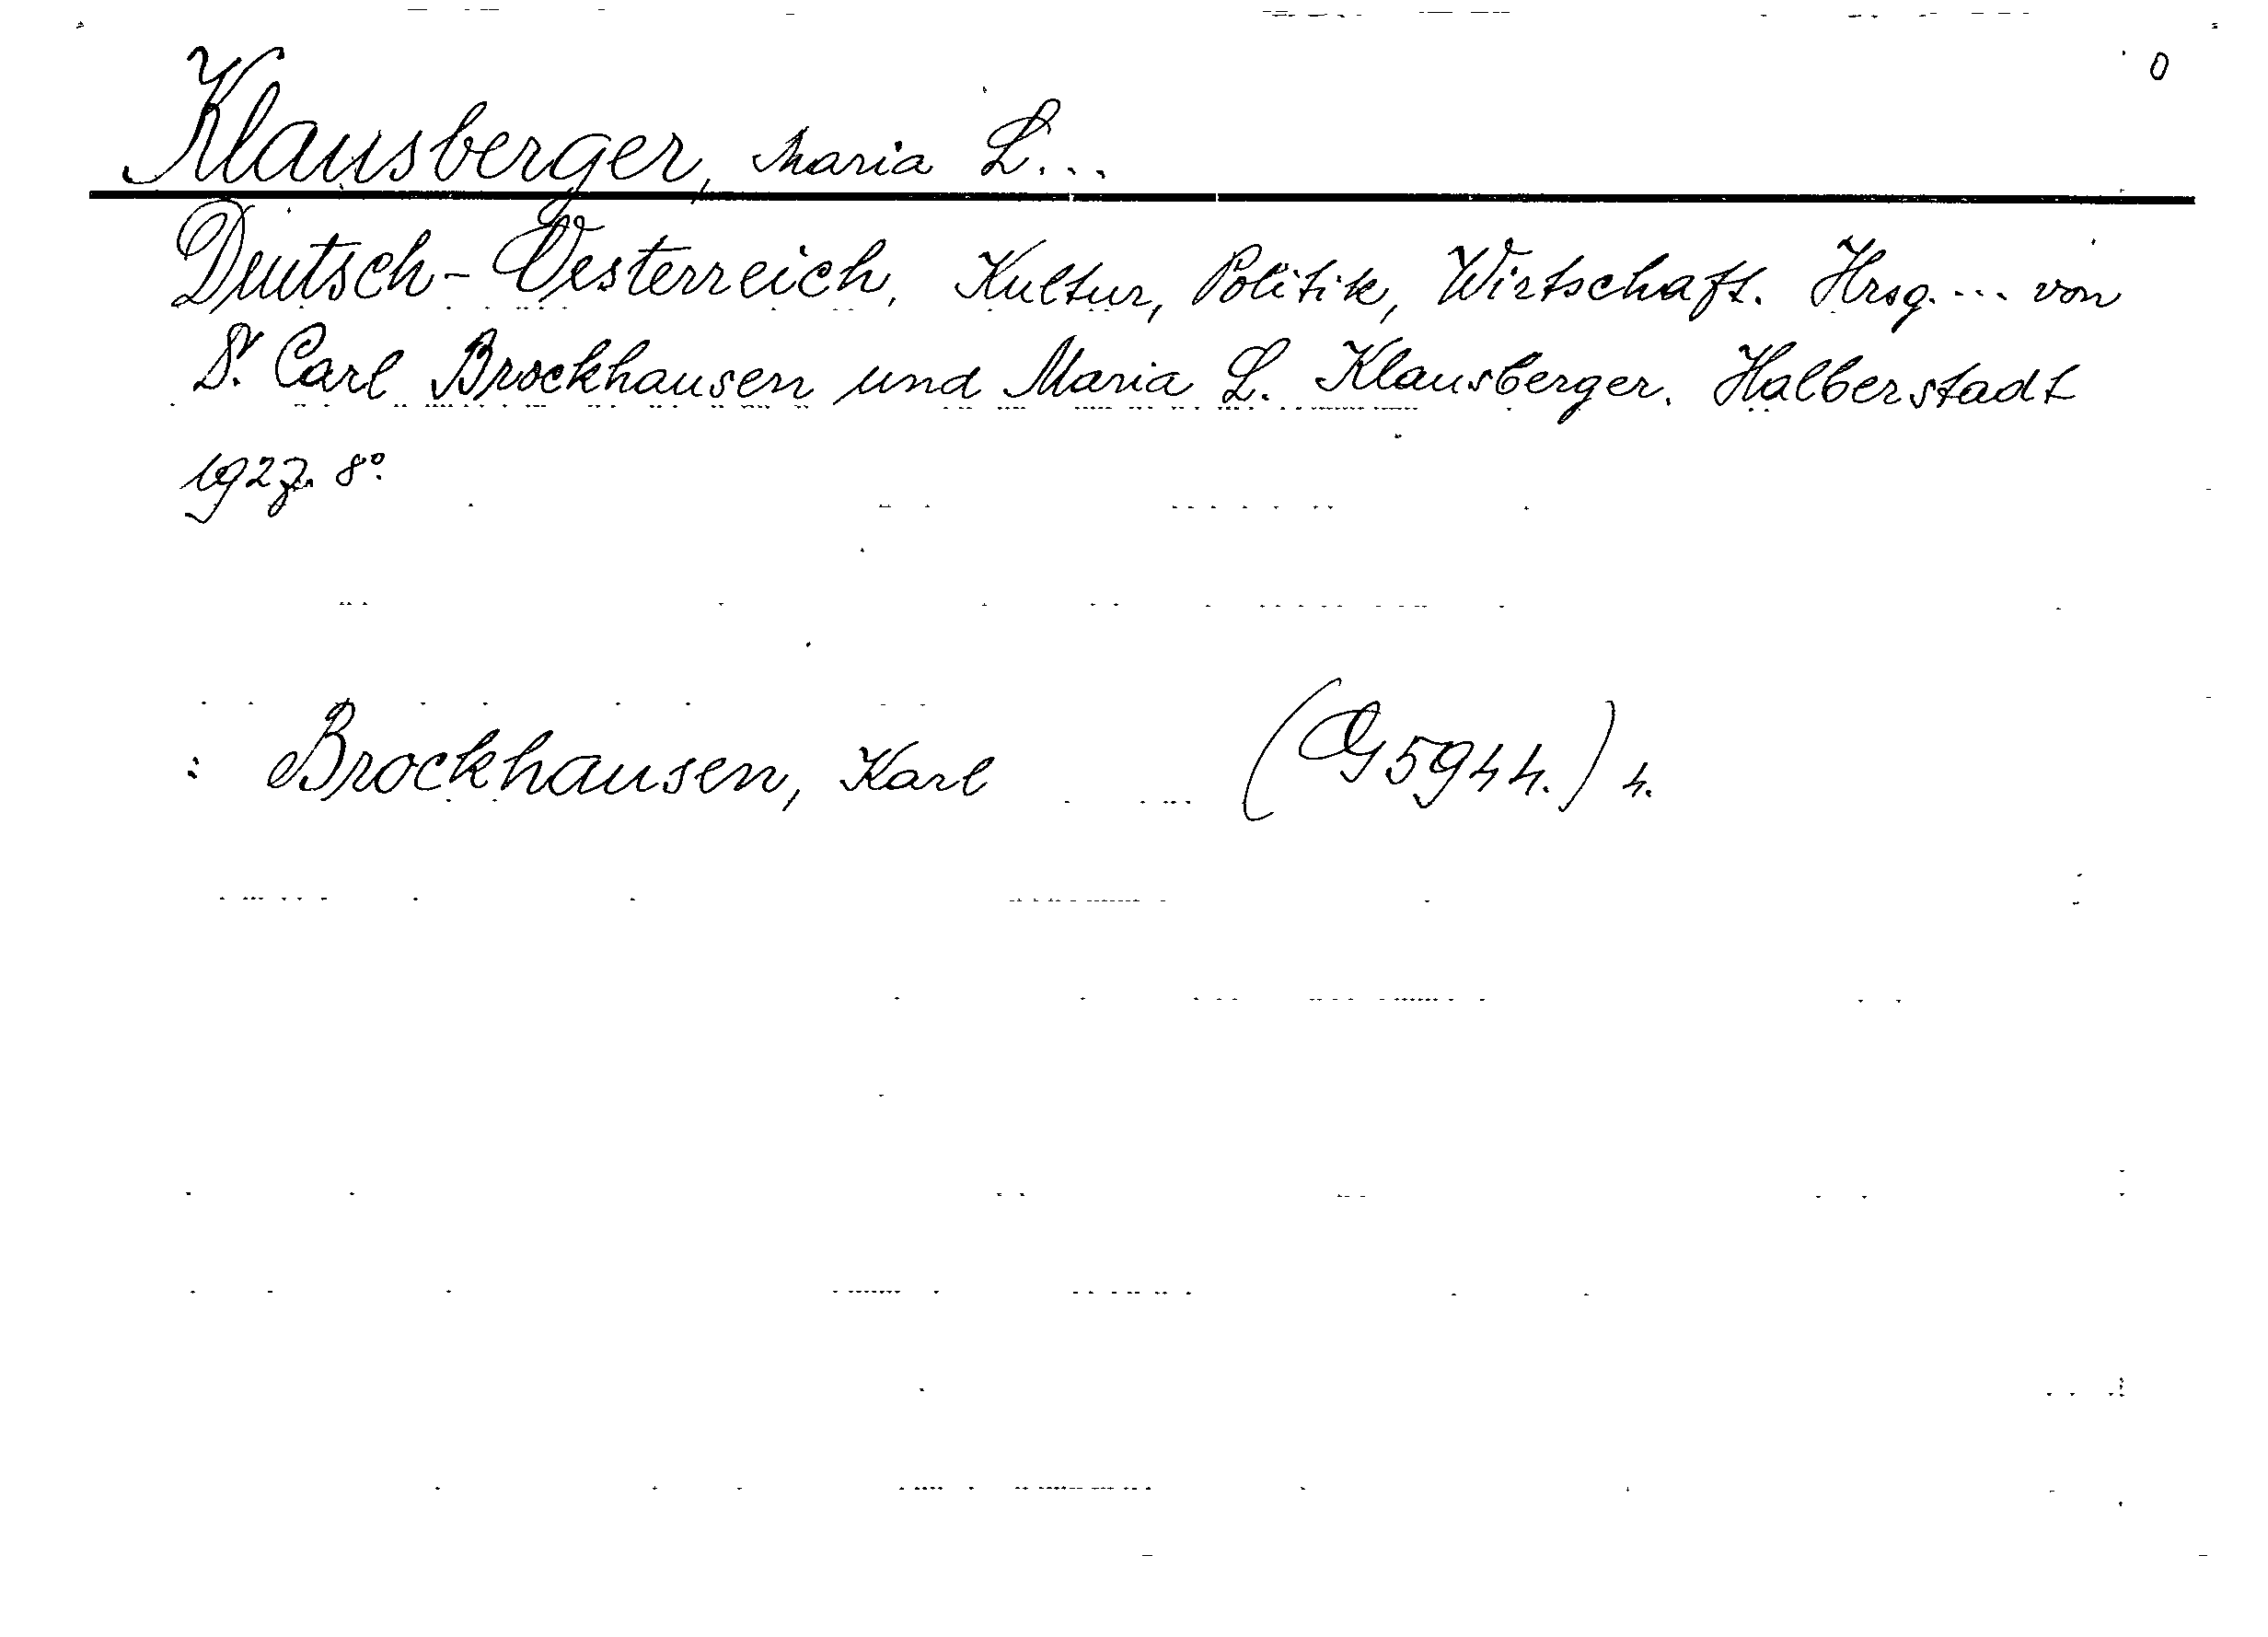 0
Klausberger, Maria L...
Deutsch-Oesterreich, Kultur, Politik, Wirtschaft. Hrsg. ... von
Dr. Carl Brockhausen und Maria L. Klausberger. Halberstadt
1927. 8°.
: Brockhausen, Karl (G 5944.) 4.